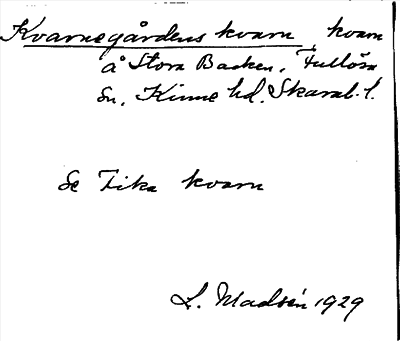 Kvarnegårdens kvarn kvarn
å Stora Backen, Fullösa
sn, Kinne hd. Skarab. l.
Se Fika kvarn
L. Madsén 1929